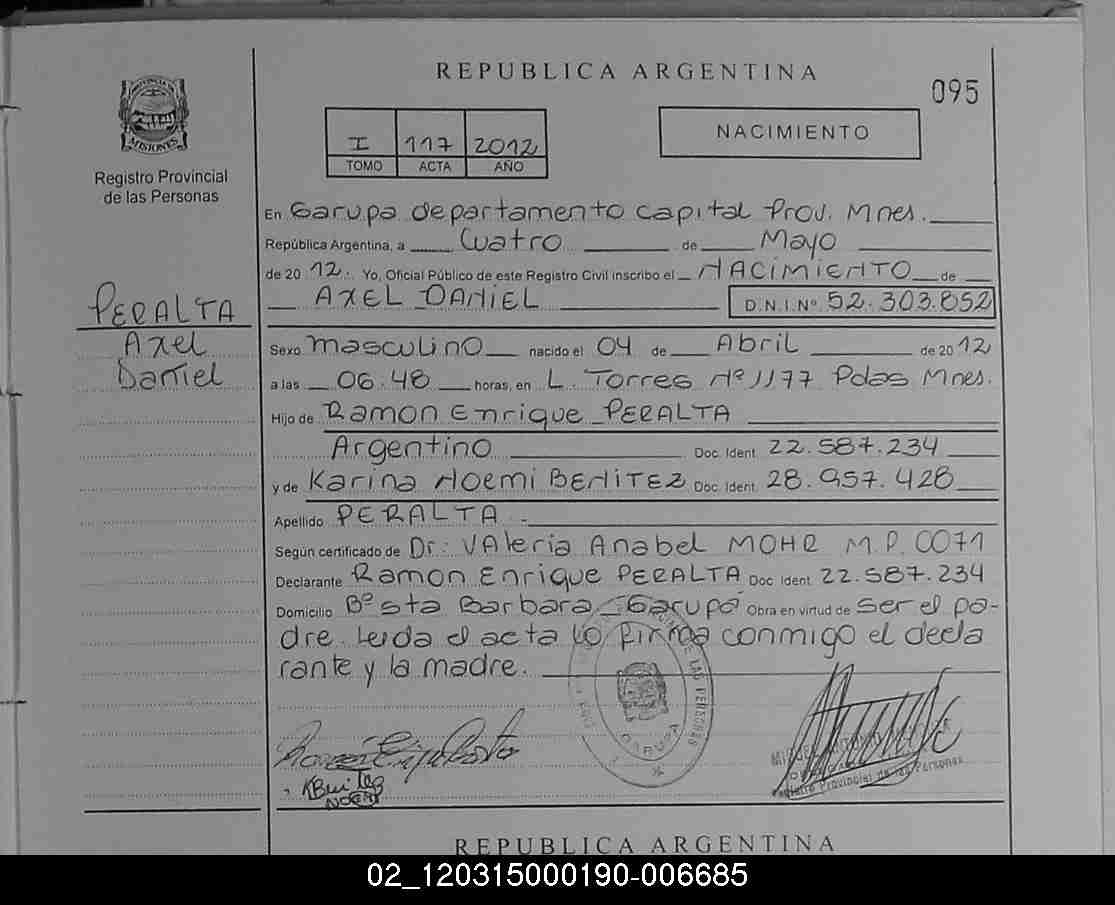 REPUBLICA ARGENTINA
095
PROVINCIA
MISIONES
Registro Provincial
de las Personas
I 117 2012
TOMO ACTA AÑO
NACIMIENTO
En Garupa departamento capital Prov. Mnes.
República Argentina, a Cuatro de Mayo
de 20 12. Yo, Oficial Público de este Registro Civil inscribo el NACIMIENTO de
AXEL DANIEL D.N.I. Nº 52.303.852
PERALTA
Axel
Daniel
Sexo masculino nacido el 04 de Abril de 20 12
a las 06.48 horas, en L. Torres Nº 1177 Pdas Mnes.
Hijo de Ramon Enrique PERALTA
Argentino Doc. Ident. 22.587.234
y de Karina Noemi BENITEZ Doc. Ident. 28.957.428
Apellido PERALTA.
Según certificado de Dr: VAleria Anabel MOHR M.P. 0071
Declarante Ramon Enrique PERALTA Doc. Ident. 22.587.234
Domicilio Bº sta Barbara - Garupa Obra en virtud de ser el pa-
dre. Leida el acta lo firma conmigo el decla
rante y la madre.
DE LAS PERSONAS
GARUPA
KBenitez
NOEMI
Registro Provincial de las Personas
REPUBLICA ARGENTINA
02_120315000190-006685